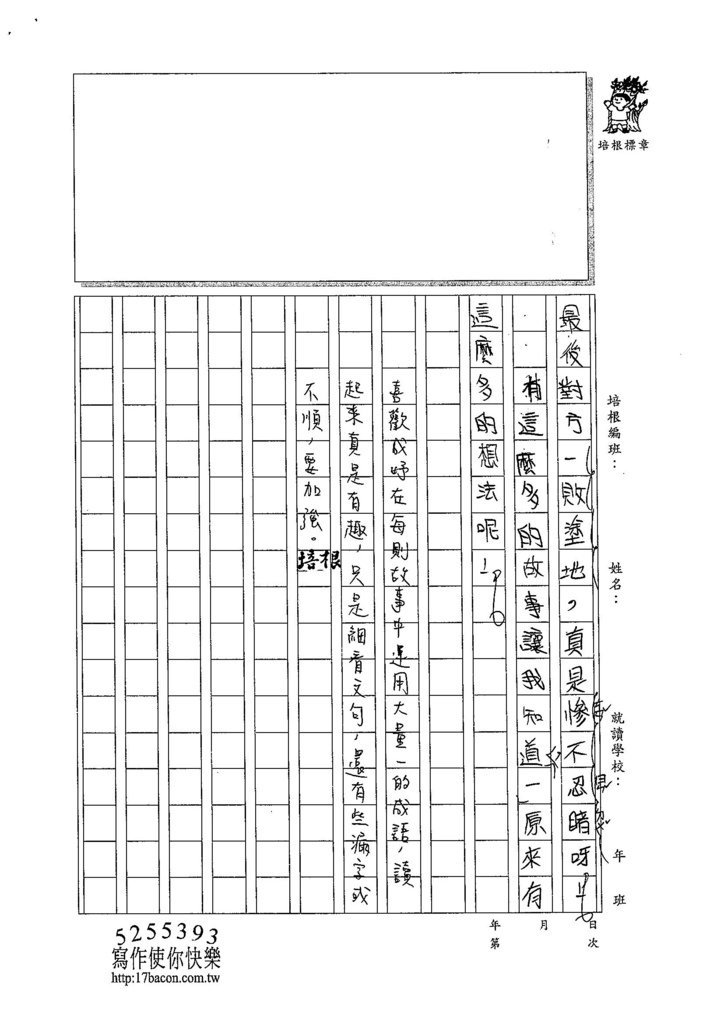 培根標章
培根編班：
姓名：
就讀學校：
年
班
最後對方一敗塗地，真是慘不忍睹呀！
有這麼多的故事讓我知道，原來有
這麼多的想法呢！
喜歡成妤在每則故事中運用大量的成語，讀
起來真是有趣，只是細看文句，還有些漏字或
不順，要加強。培根
年
月
日
第
次
5255393
寫作使你快樂
http:17bacon.com.tw